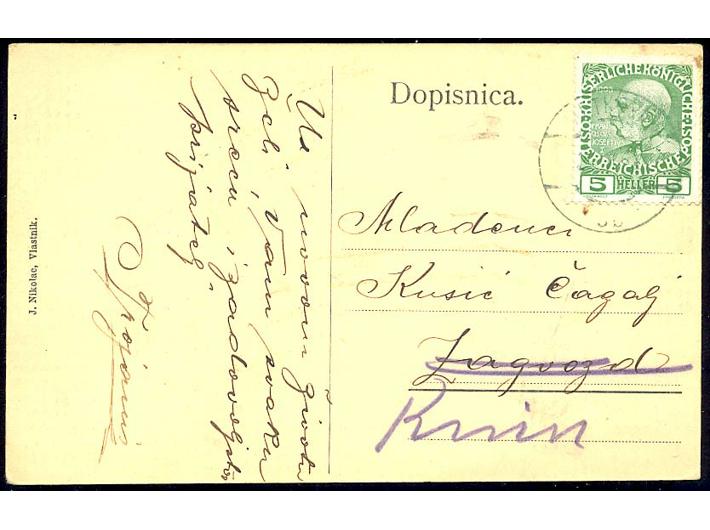 Dopisnica.
KAISERLICHE KÖNIGLICHE
ÖSTERREICHISCHE
5 HELLER 5
Mladenci
Kusić Čagalj
Zagvozd
Knin
U novom životu
želi Vam svaku
sreću i zadovoljstvo
prijatelj
J. Nikolac, Vlastnik.